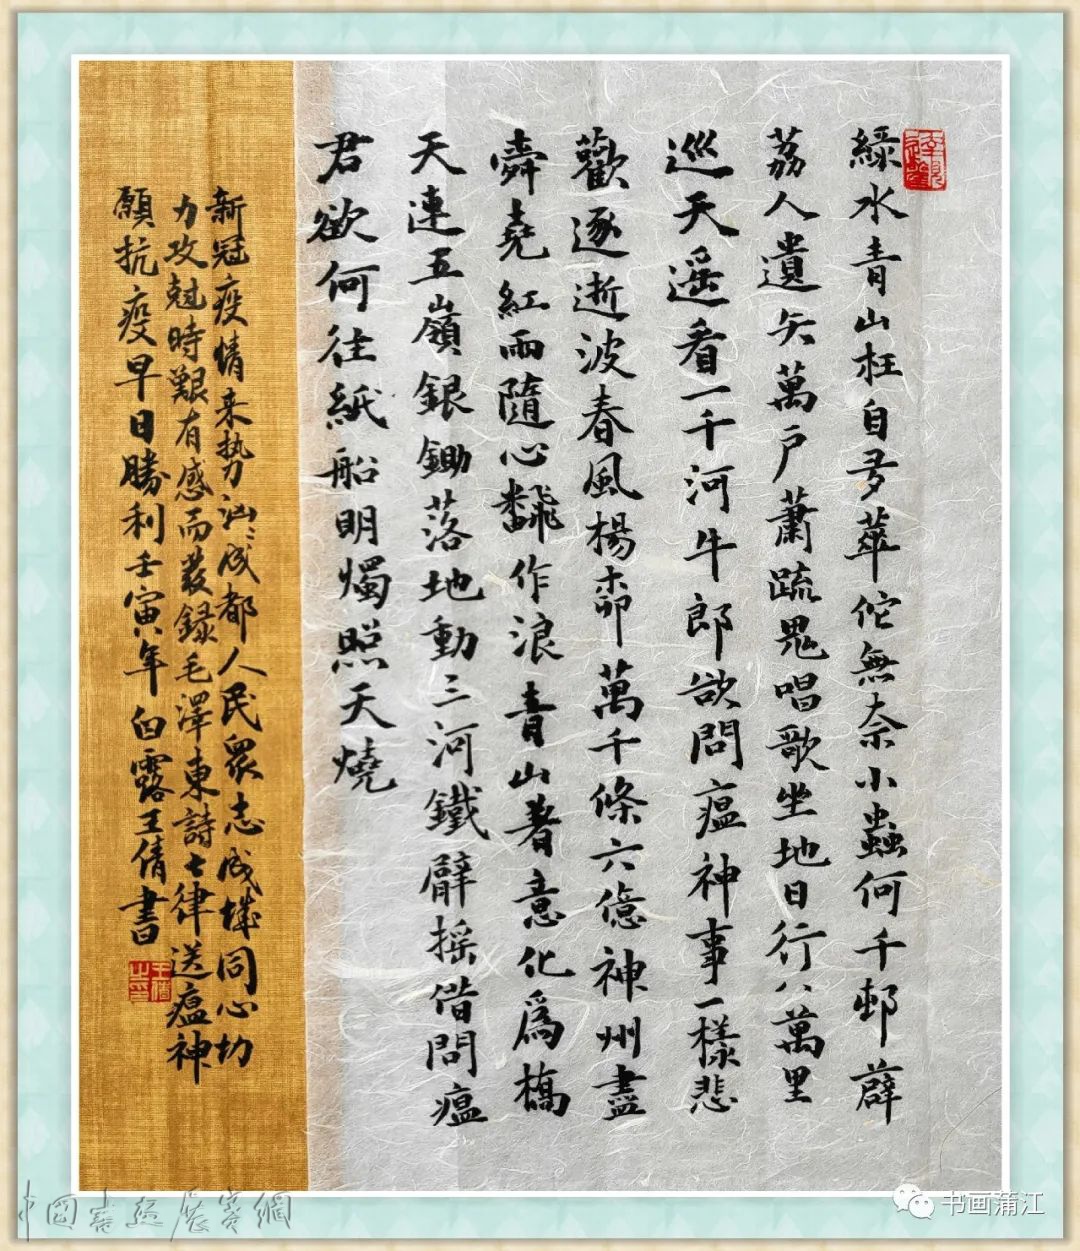 綠水青山枉自多華佗無奈小蟲何千邨薜
荔人遺矢萬戶蕭疏鬼唱歌坐地日行八萬里
巡天遙看一千河牛郎欲問瘟神事一樣悲
歡逐逝波春風楊柳萬千條六億神州盡
舜堯紅雨隨心飜作浪青山著意化爲橋
天連五嶺銀鋤落地動三河鐵臂搖借問瘟
君欲何往紙船明燭照天燒
新冠疫情来势汹々成都人民眾志成城同心协
力攻尅時艱有感而發録毛澤東詩七律送瘟神
願抗疫早日勝利壬寅年白露王倩書
王倩之印
中國書画展賽網
书画蒲江